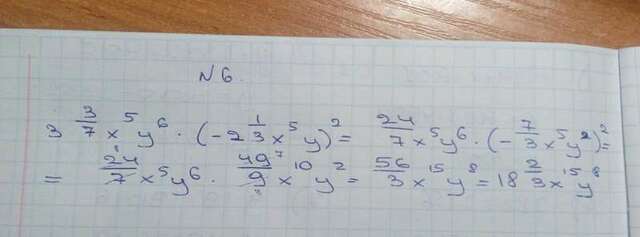 N6.
3 3/7 x⁵y⁶ · (-2 1/3 x⁵y)² = 24/7 x⁵y⁶ · (-7/3 x⁵y²)² =
= 24⁸/7 x⁵y⁶ · 49⁷/9₃ x¹⁰y² = 56/3 x¹⁵y⁸ = 18 2/3 x¹⁵y⁸